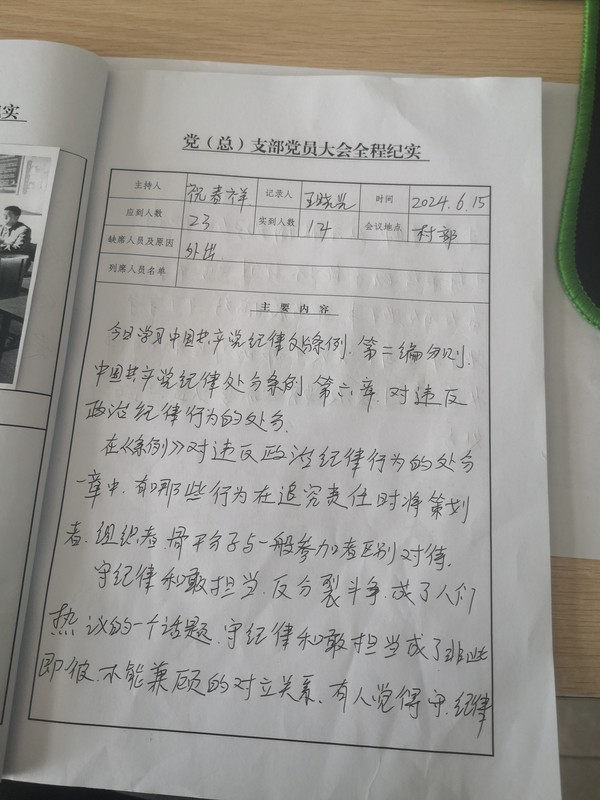 实
党（总）支部党员大会全程纪实
主持人 祝春祥 记录人 王晓光 时间 2024.6.15
应到人数 23 实到人数 14 会议地点 村部
缺席人员及原因 外出
列席人员名单
主要内容
今日学习中国共产党纪律处条例.第二编分则.
中国共产党纪律处分条例 第六章.对违反
政治纪律行为的处分.
在《条例》对违反政治纪律行为的处分
一章中.有哪些行为在追究责任时将策划
者.组织者.骨干分子与一般参加者区别对待.
守纪律和敢担当.反分裂斗争.成了人们
热议的一个话题.守纪律和敢担当成了非此
即彼.不能兼顾的对立关系.有人觉得守.纪律